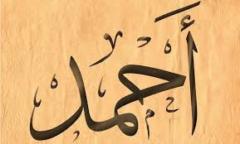 أَحمد